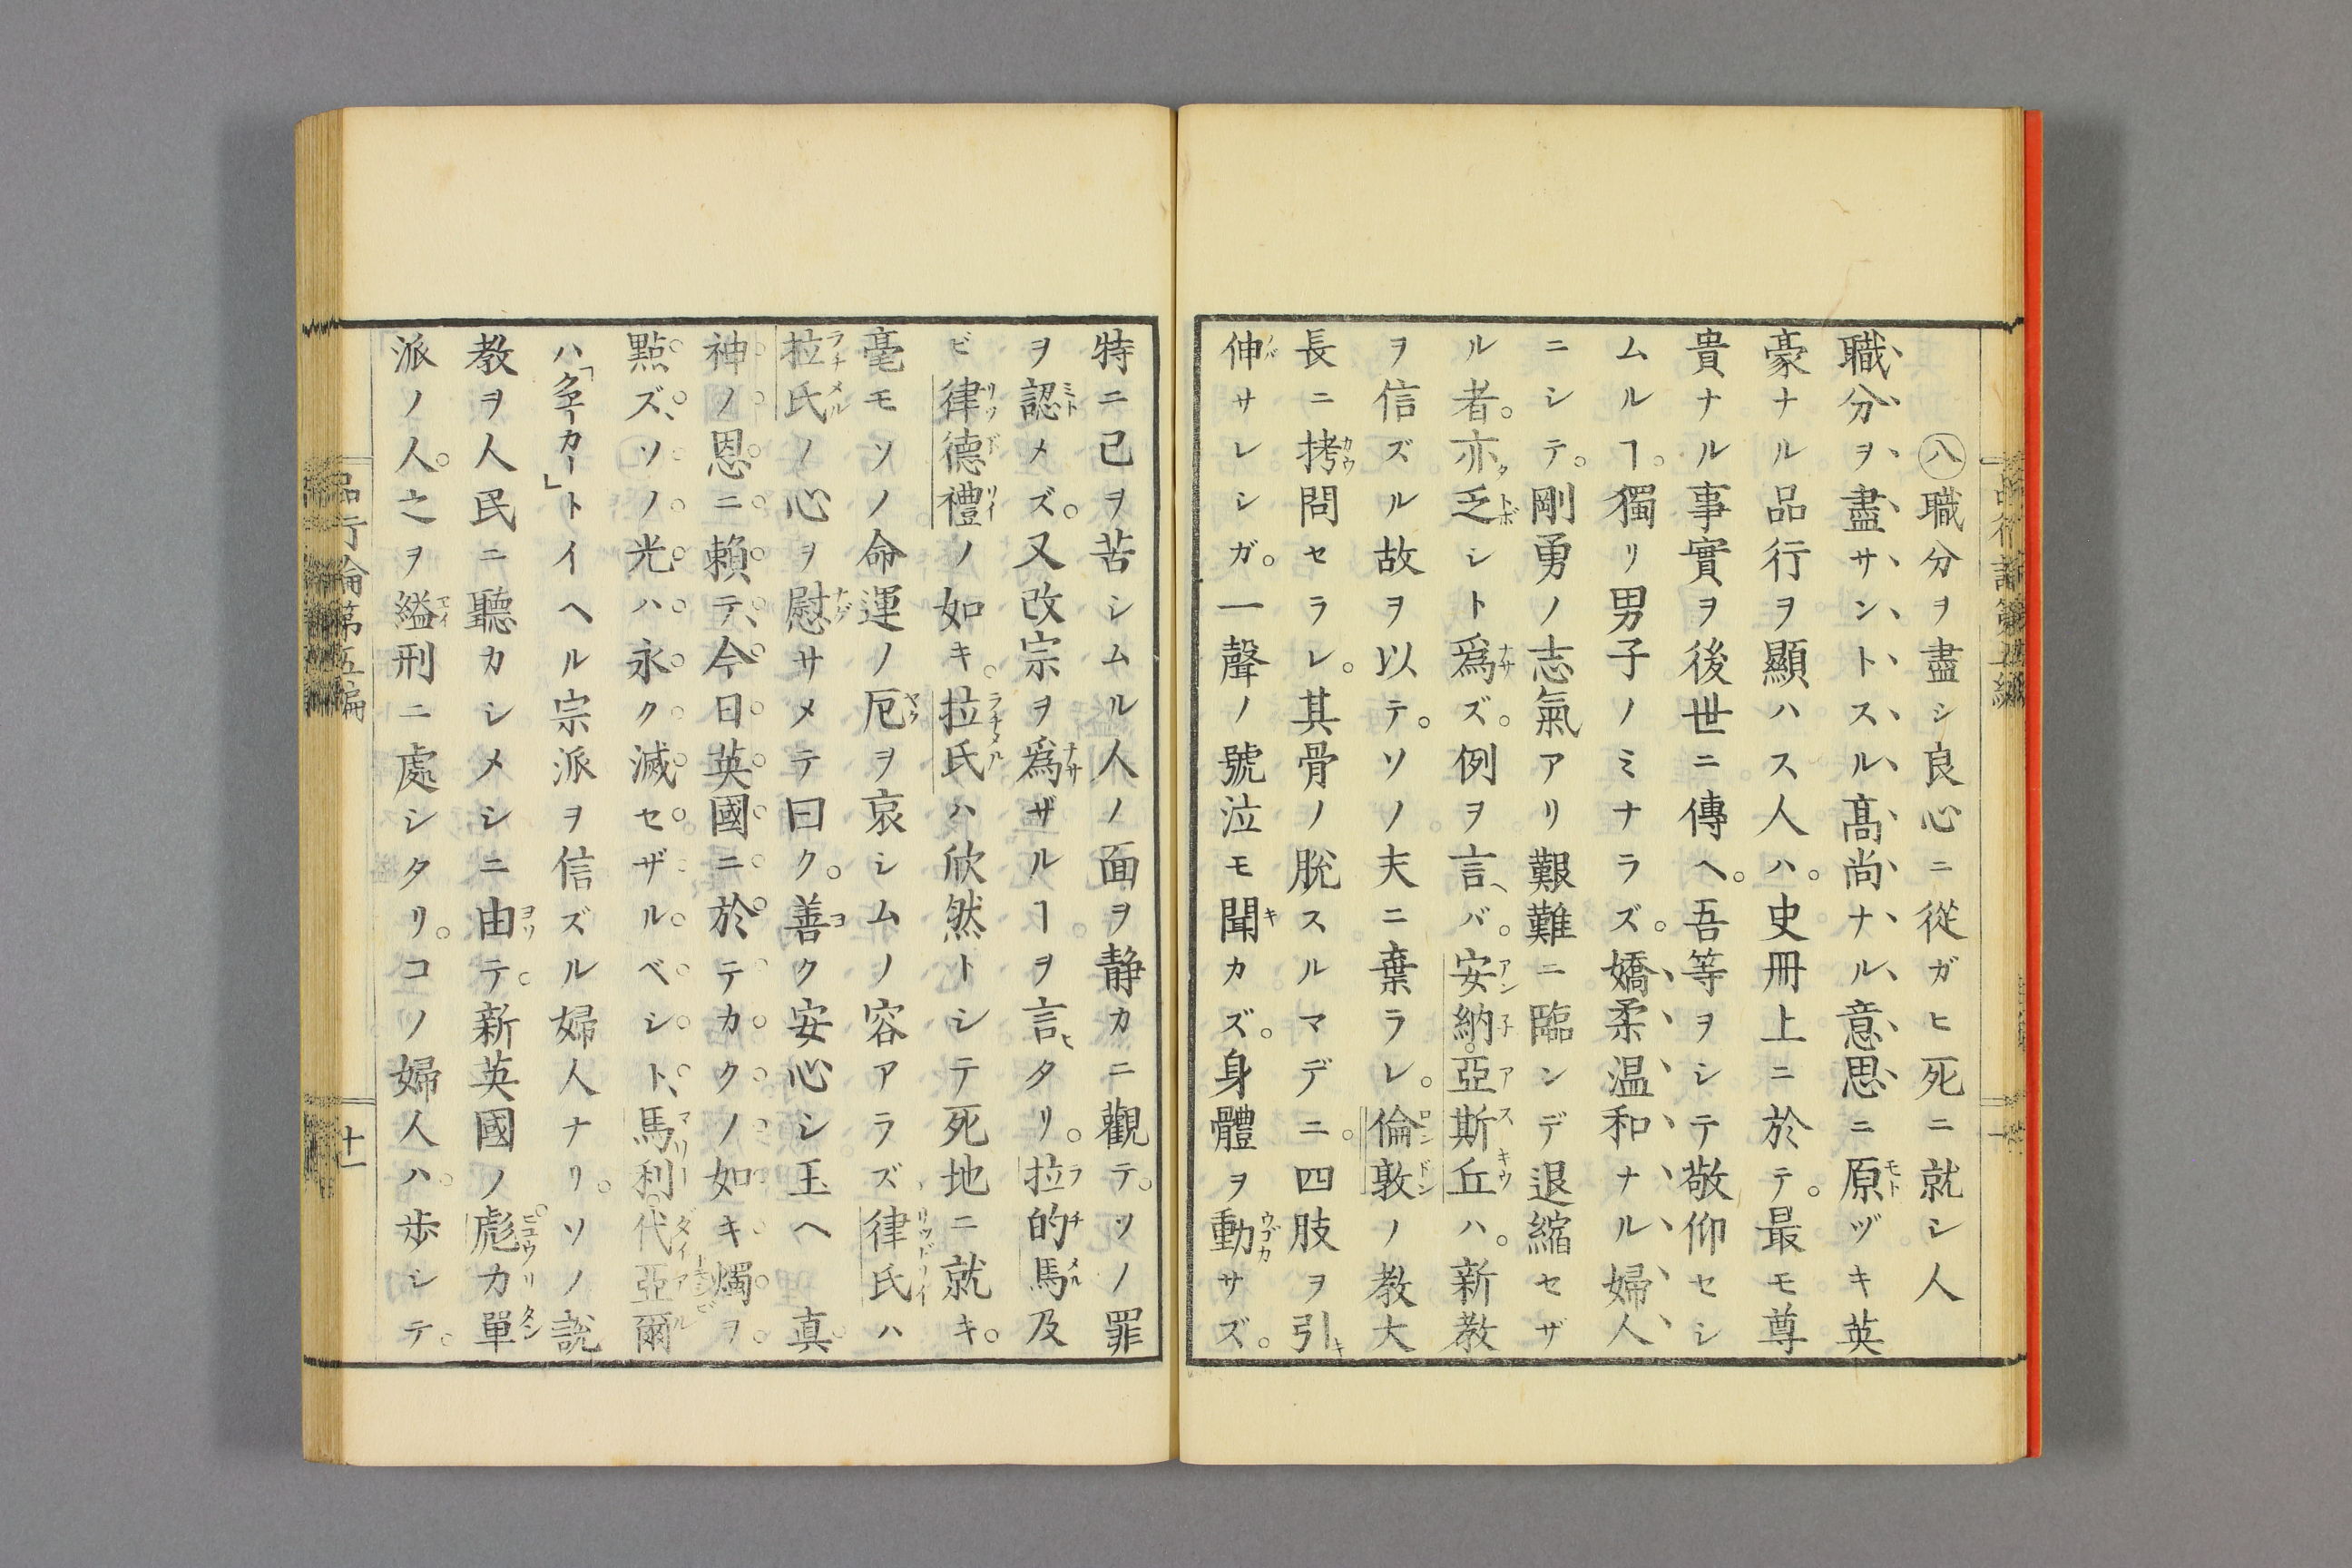 ㊇職分ヲ盡シ良心ニ從ガヒ死ニ就シ人
職分ヲ盡サントスル髙尚ナル意思ニ原ヅキ英
豪ナル品行ヲ顯ハス人ハ。史冊上ニ於テ。最モ尊
貴ナル事實ヲ後世ニ傳ヘ。吾等ヲシテ敬仰セシ
ムルヿ。獨リ男子ノミナラズ。嬌柔温和ナル婦人
ニシテ。剛勇ノ志氣アリ艱難ニ臨ンデ退縮セザ
ル者。亦乏シト爲ズ。例ヲ言ヘバ。安納。亞斯丘ハ。新教
ヲ信ズル故ヲ以テ。ソノ夫ニ棄ラレ。倫敦ノ教大
長ニ拷問セラレ。其骨ノ脱スルマデニ。四肢ヲ引
伸サレシガ。一聲ノ號泣モ聞カズ。身體ヲ動サズ。
特ニ已ヲ苦シムル人ノ面ヲ静カニ觀テ。ソノ罪
ヲ認メズ。又改宗ヲ爲ザルヿヲ言ヒタリ。拉的馬及
ビ律德禮ノ如キ。拉氏ハ欣然トシテ死地ニ就キ。
毫モソノ命運ノ厄ヲ哀シムノ容アラズ律氏ハ
拉氏ノ心ヲ慰サメテ曰ク。善ク安心シ玉ヘ 真
神ノ恩ニ賴テ、今日英國ニ於テカクノ如キ燭ヲ
點ズ、ソノ光ハ永ク滅セザルベシト、馬利。代亞爾
ハ「クエーカー」トイヘル宗派ヲ信ズル婦人ナリ。ソノ說
教ヲ人民ニ聽カシメシニ由テ。新英國ノ彪力單
派ノ人。之ヲ縊刑ニ處シタリ。コノ婦人ハ。歩シテ。
品行論第五編
十一